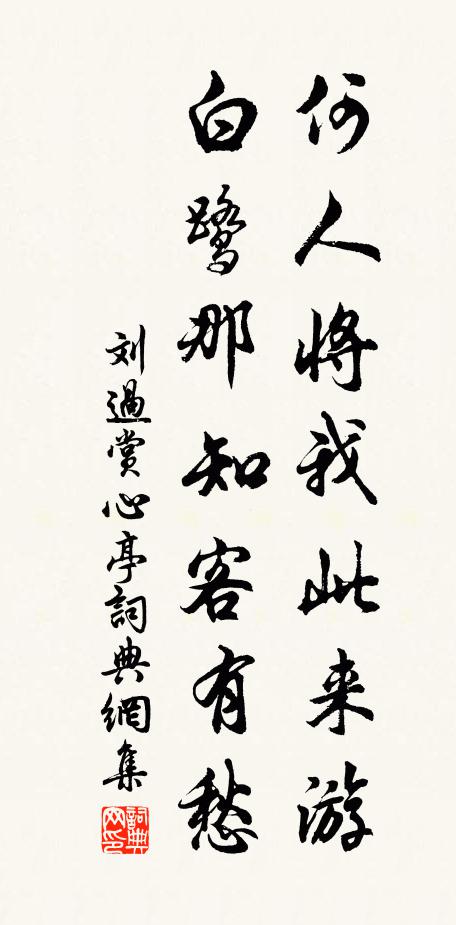 何人将我此来游
白鹭那知客有愁
刘過赏心亭詞典網集
詞典网印